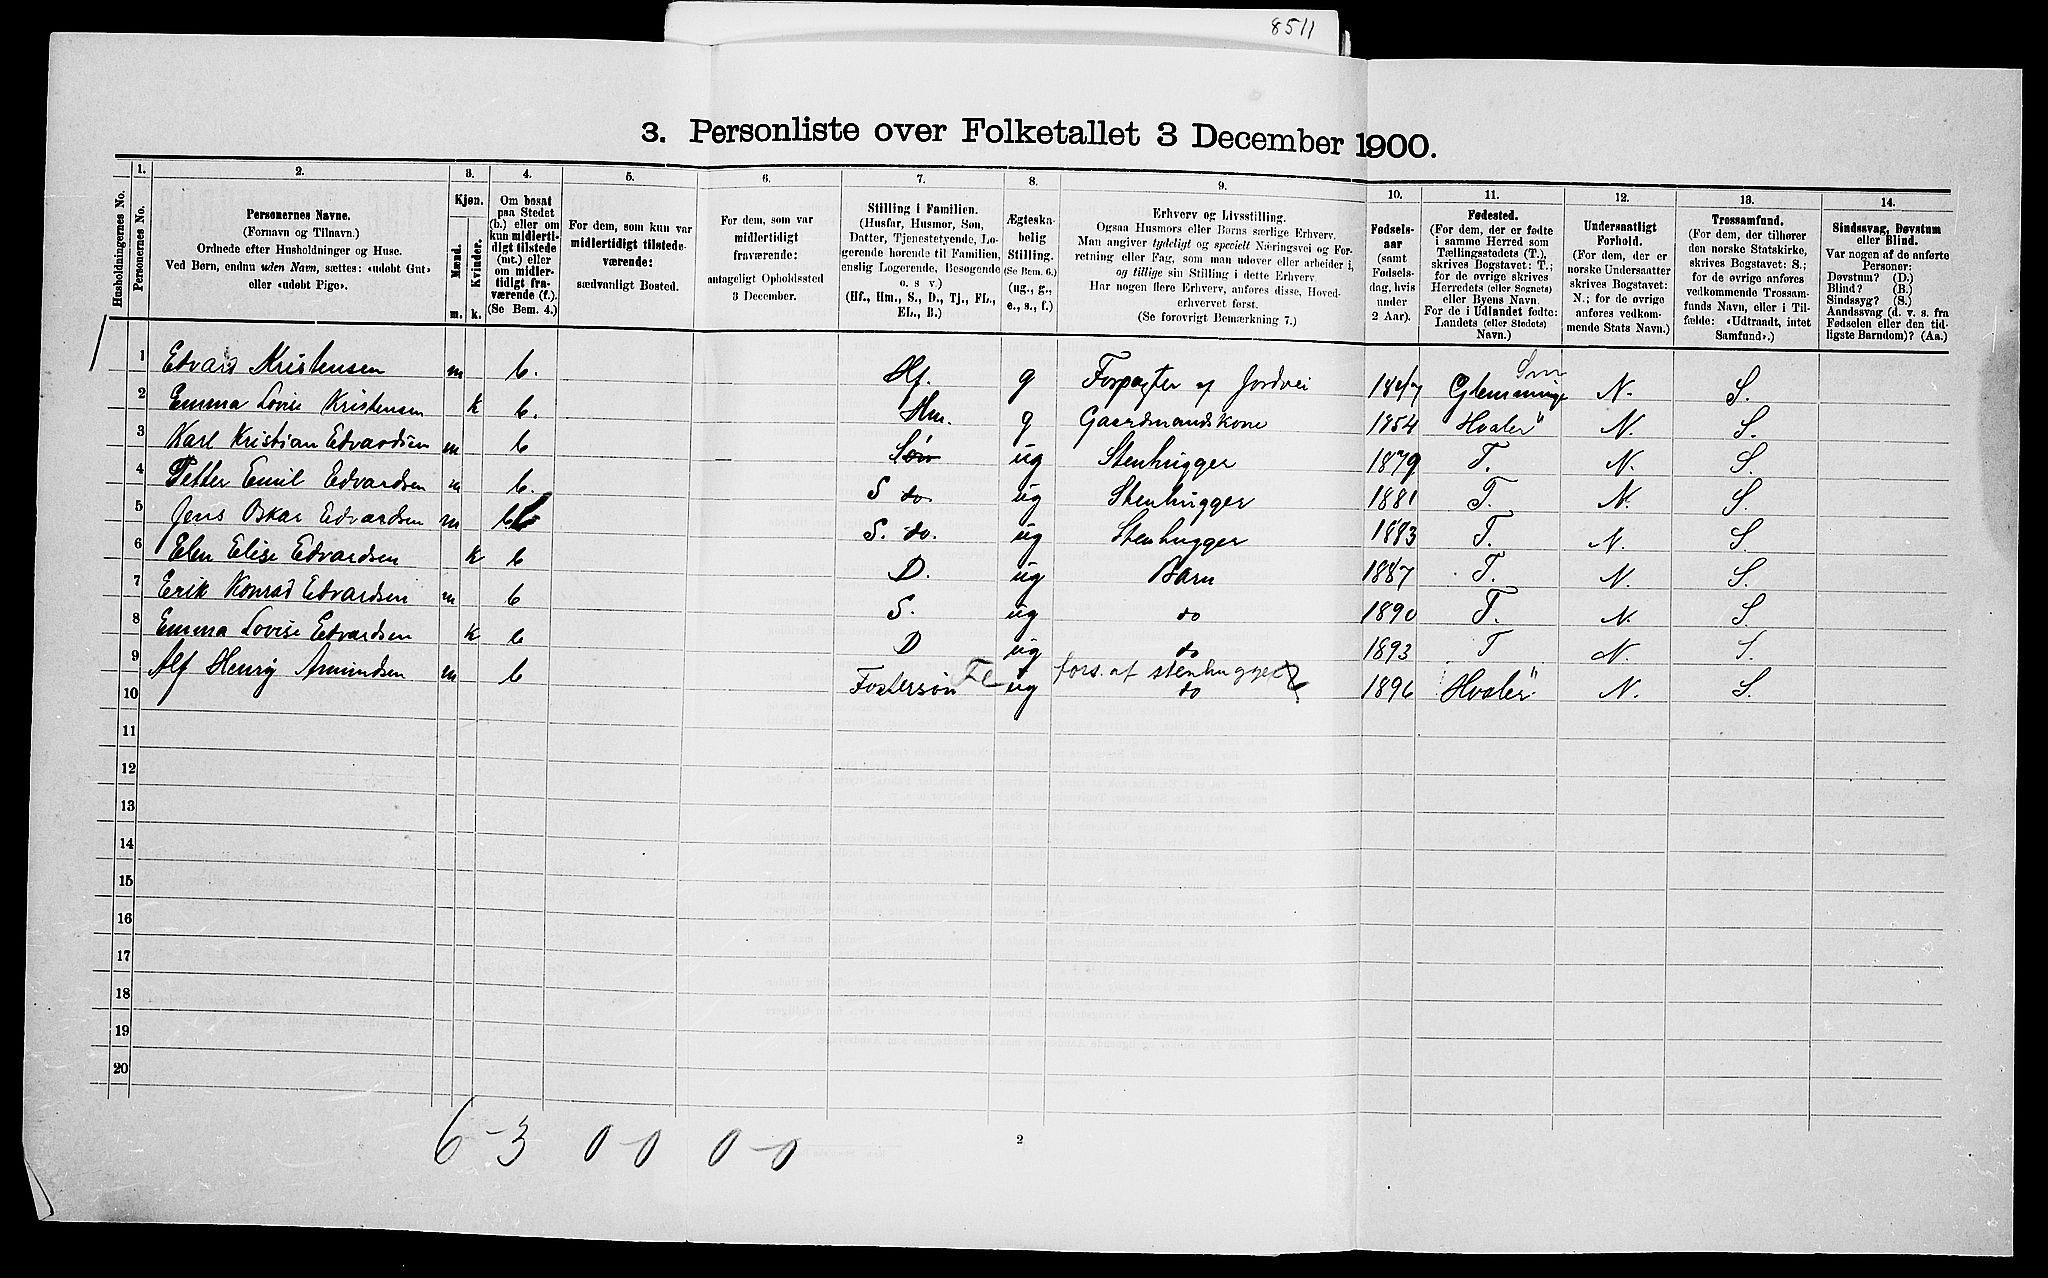 8511
3. Personliste over Folketallet 3 December 1900.
Husholdningernes No.
1. Personernes No.
2. Personernes Navne. (Fornavn og Tilnavn.) Ordnede efter Husholdninger og Huse. Ved Børn, endnu uden Navn, sættes: «udøbt Gut» eller «udøbt Pige».
3. Kjøn. Mænd. m. Kvinder. k.
4. Om bosat paa Stedet (b.) eller om kun midlertidigt tilstede (mt.) eller om midlertidigt fraværende (f.). (Se Bem. 4.)
5. For dem, som kun var midlertidigt tilstedeværende: sædvanligt Bosted.
6. For dem, som var midlertidigt fraværende: antageligt Opholdssted 3 December.
7. Stilling i Familien. (Husfar, Husmor, Søn, Datter, Tjenestetyende, Logerende hørende til Familien, enslig Logerende, Besøgende o. s. v.) (Hf., Hm., S., D., Tj., FL., EL., B.)
8. Ægteskabelig Stilling. (Se Bem. 6.) (ug., g., e., s., f.)
9. Erhverv og Livsstilling. Ogsaa Husmors eller Børns særlige Erhverv. Man angiver tydeligt og specielt Næringsvei og Forretning eller Fag, som man udøver eller arbeider i, og tillige sin Stilling i dette Erhverv. Har nogen flere Erhverv, anføres disse, Hovederhvervet først. (Se forøvrigt Bemærkning 7.)
10. Fødselsaar (samt Fødselsdag, hvis under 2 Aar).
11. Fødested. (For dem, der er fødte i samme Herred som Tællingsstedets (T.), skrives Bogstavet: T.; for de øvrige skrives Herredets (eller Sognets) eller Byens Navn. For de i Udlandet fødte: Landets (eller Stedets) Navn.)
12. Undersaatligt Forhold. (For dem, der er norske Undersaatter skrives Bogstavet: N.; for de øvrige anføres vedkommende Stats Navn.)
13. Trossamfund. (For dem, der tilhører den norske Statskirke, skrives Bogstavet: S.; for de øvrige anføres vedkommende Trossamfunds Navn, eller i Tilfælde: «Udtraadt, intet Samfund».)
14. Sindssvag, Døvstum eller Blind. Var nogen af de anførte Personer: Døvstum? (D.) Blind? (B.) Sindssyg? (S.) Aandssvag (d. v. s. fra Fødselen eller den tidligste Barndom)? (Aa.)
1 Edvard Kristensen m b. Hf. g Forpagter af Jordvei 1847 Glemminge Sm N. S.
2 Emma Lovise Kristensen k b. Hm. g Gaardmandskone 1854 Hvaler" N. S.
3 Karl Kristian Edvardsen m b Søn ug Stenhugger 1879 T. N. S.
4 Petter Emil Edvardsen m b. S do. ug Stenhugger 1881 T. N. S.
5 Jens Oskar Edvardsen m b S. do. ug Stenhugger 1883 T. N. S.
6 Elen Elise Edvardsen k b D. ug Barn 1887 T. N. S.
7 Erik Konrad Edvardsen m b S. ug do 1890 T. N. S.
8 Emma Lovise Edvardsen k b D ug do 1893 T N. S.
9 Alf Henry Amundsen m b Fostersøn Fl ug fors. af stenhugger do 1896 "Hvaler" N. S.
10
11
12
13
14
15
16
17
18
19
20
6-3 0-0 0-0
2